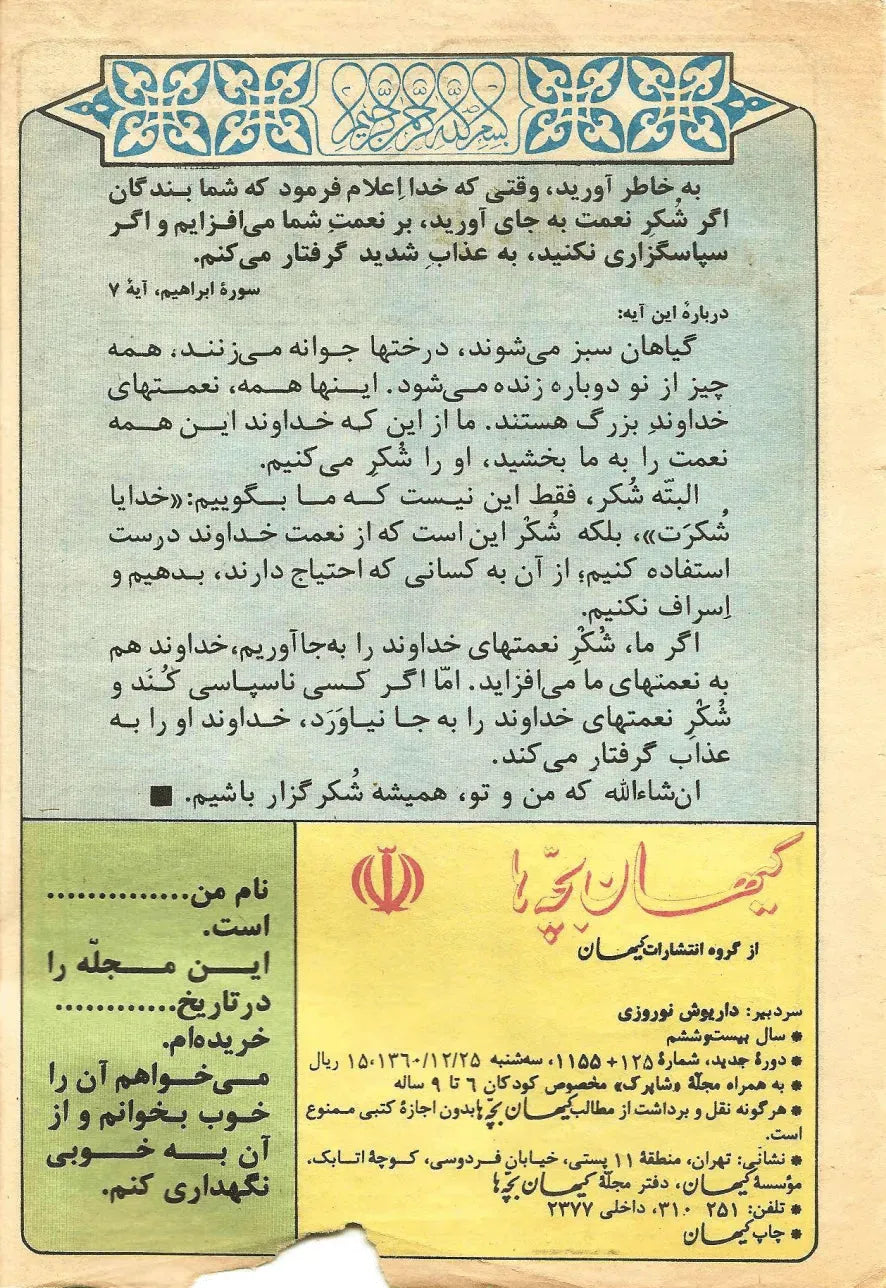 بسم الله الرحمن الرحیم
به خاطر آورید، وقتی که خدا اِعلام فرمود که شما بندگان
اگر شُکرِ نعمت به جای آورید، بر نعمتِ شما می‌افزایم و اگر
سپاسگزاری نکنید، به عذابِ شدید گرفتار می‌کنم.
سورهٔ ابراهیم، آیهٔ ۷
دربارهٔ این آیه:
گیاهان سبز می‌شوند، درختها جوانه می‌زنند، همه
چیز از نو دوباره زنده می‌شود. اینها همه، نعمتهای
خداوندِ بزرگ هستند. ما از این که خداوند این همه
نعمت را به ما بخشید، او را شُکر می‌کنیم.
البتّه شُکر، فقط این نیست که ما بگوییم: «خدایا
شُکرَت»، بلکه شُکْر این است که از نعمت خداوند درست
استفاده کنیم؛ از آن به کسانی که احتیاج دارند، بدهیم و
اِسراف نکنیم.
اگر ما، شُکْرِ نعمتهای خداوند را به‌جا آوریم، خداوند هم
به نعمتهای ما می‌افزاید. امّا اگر کسی ناسپاسی کُنَد و
شُکْرِ نعمتهای خداوند را به جا نیاوَرَد، خداوند او را به
عذاب گرفتار می‌کند.
ان‌شاءالله که من و تو، همیشه شُکرگزار باشیم. ■
کیهان بچّه‌ها
از گروه انتشارات کیهان
سردبیر: داریوش نوروزی
* سال بیست‌وششم
* دورهٔ جدید، شمارهٔ ۱۲۵+ ۱۱۵۵، سه‌شنبه ۱۳۶۰/۱۲/۲۵، ۱۵ ریال
* به همراه مجلّهٔ «شاپرک» مخصوص کودکان ۶ تا ۹ ساله
* هرگونه نقل و برداشت از مطالب کیهان بچّه‌ها بدون اجازهٔ کتبی ممنوع
است.
* نشانی: تهران، منطقهٔ ۱۱ پستی، خیابان فردوسی، کوچهٔ اتابک،
مؤسسهٔ کیهان، دفتر مجلّهٔ کیهان بچّه‌ها
* تلفن: ۲۵۱ ۳۱۰، داخلی ۲۳۷۷
* چاپ کیهان
نام من..............
است.
این مجلّه را
در تاریخ............
خریده‌ام.
می‌خواهم آن را
خوب بخوانم و از
آن به خوبی
نگهداری کنم.